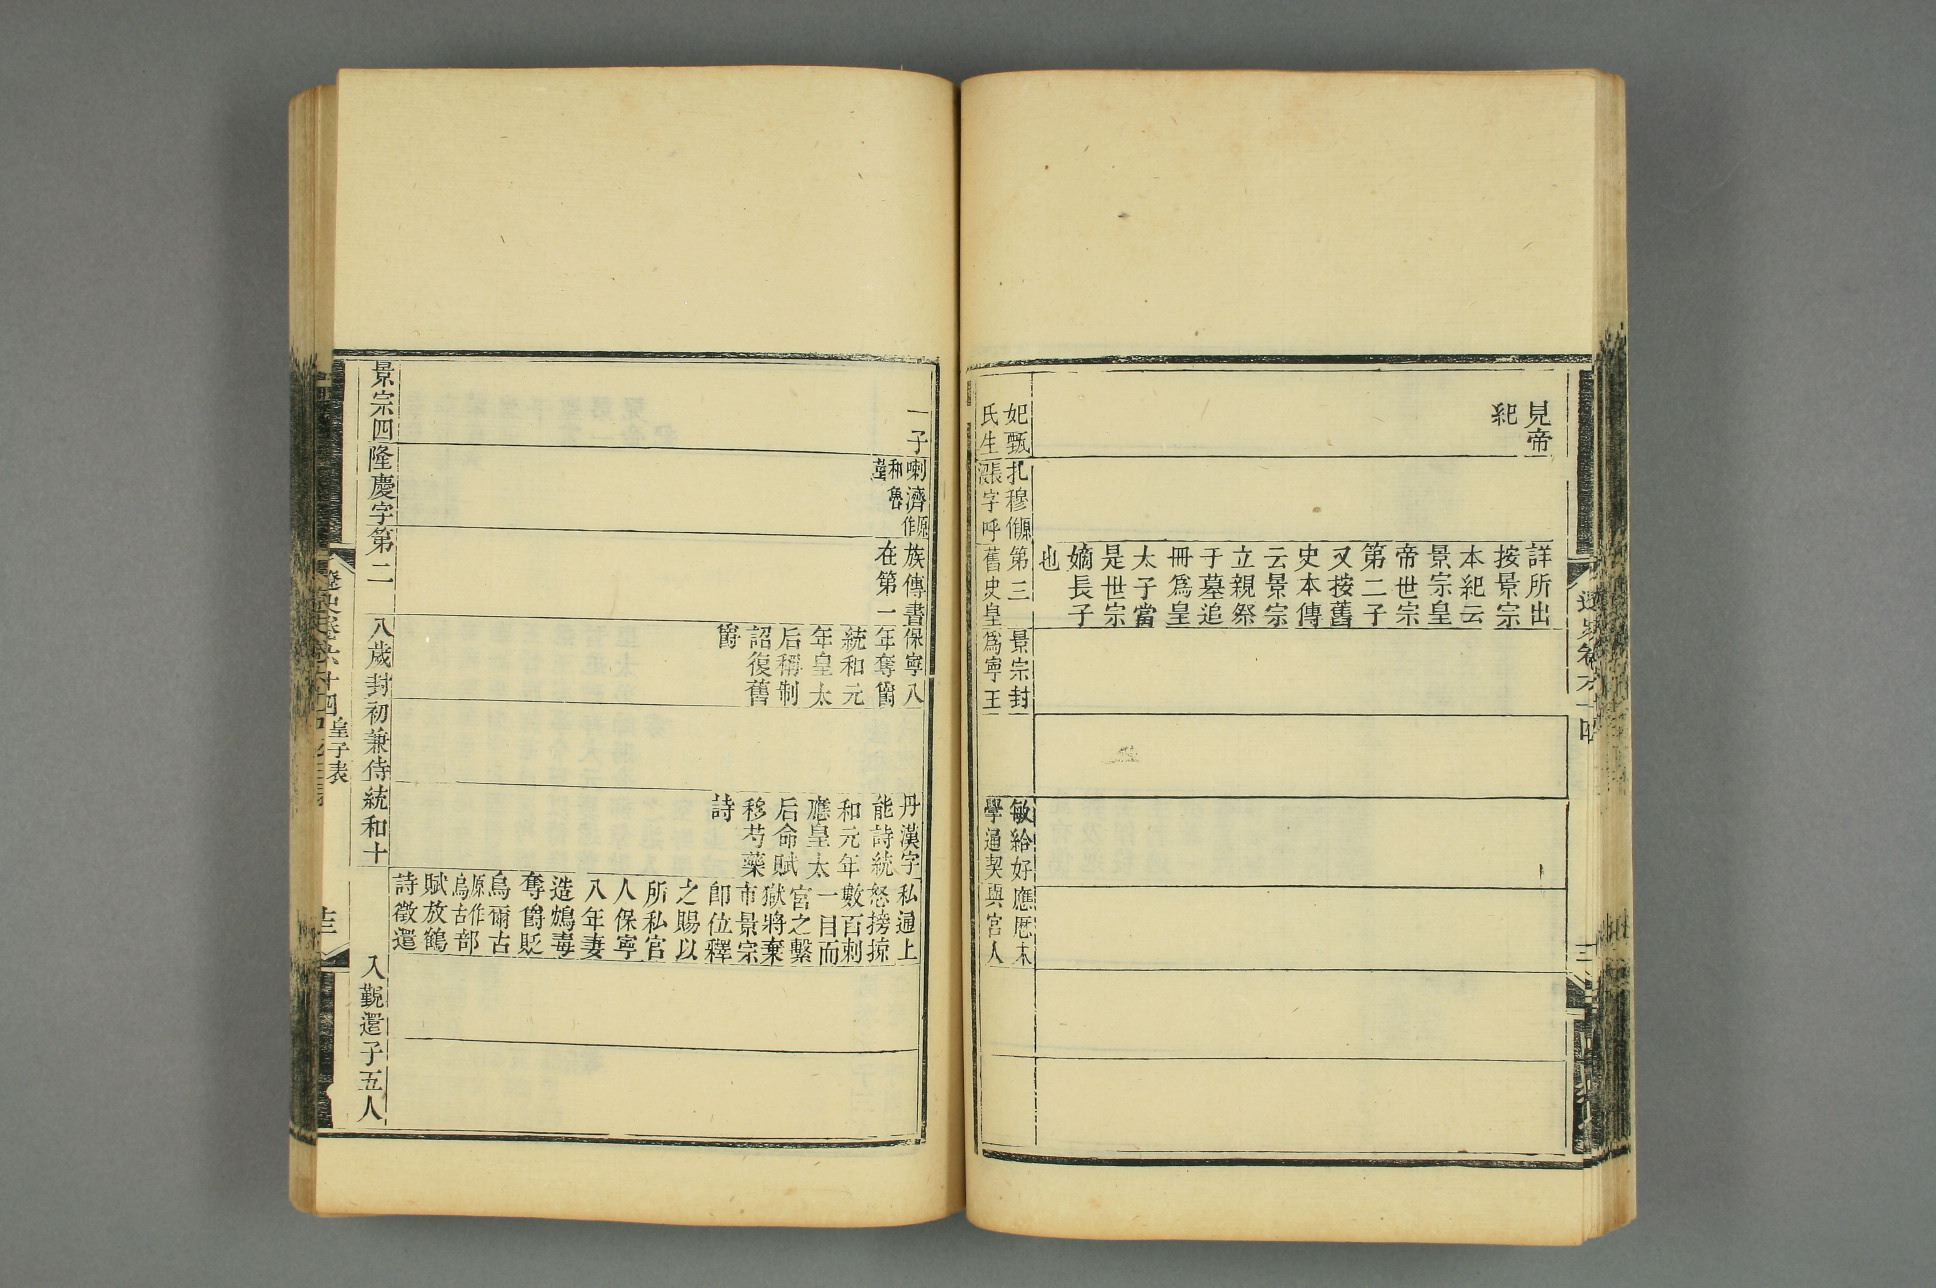 見帝
紀
詳所出
按景宗
本紀云
景宗皇
帝世宗
第二子
又按舊
史本傳
云景宗
立親祭
于墓追
冊爲皇
太子當
是世宗
嫡長子
也
妃甄
氏生
扎穆原作
字呼
第三
舊史皇
景宗封
爲寧王
敏給好
學通契
應厯末
與宮人
一子
喇濟原作
和魯
族傳書
在第一
保寧八
年奪爵
統和元
年皇太
后稱制
詔復舊
爵
丹漢字
能詩統
和元年
應皇太
后命賦
移芍藥
詩
私通上
怒搒掠
數百刺
一目而
宮之繫
獄將棄
市景宗
卽位釋
之賜以
所私官
人保寧
八年妻
造鴆毒
奪爵貶
烏爾古
原作
烏古部
賦放鶴
詩徵還
景宗四
隆慶字
第二
八歲封
初兼侍
統和十
入覲還
子五人
遼史卷六十四
皇子表